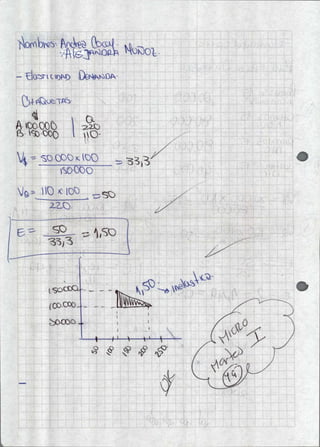 Nombres: Andrea Cocuy
: ALEJANDRA MUÑOZ.
- ELASTICIDAD DEMANDA.
CHAQUETAS
$ | Q
A 100000 | 220
B 150000 | 110
V$ = 50000 x 100 / 150000 = 33,3
VQ = 110 x 100 / 220 = 50
E = 50 / 33,3 = 1,50
1,50 inelastica
150000
100000
50000
50 100 150 200 250
OK
MICRO
Martes I